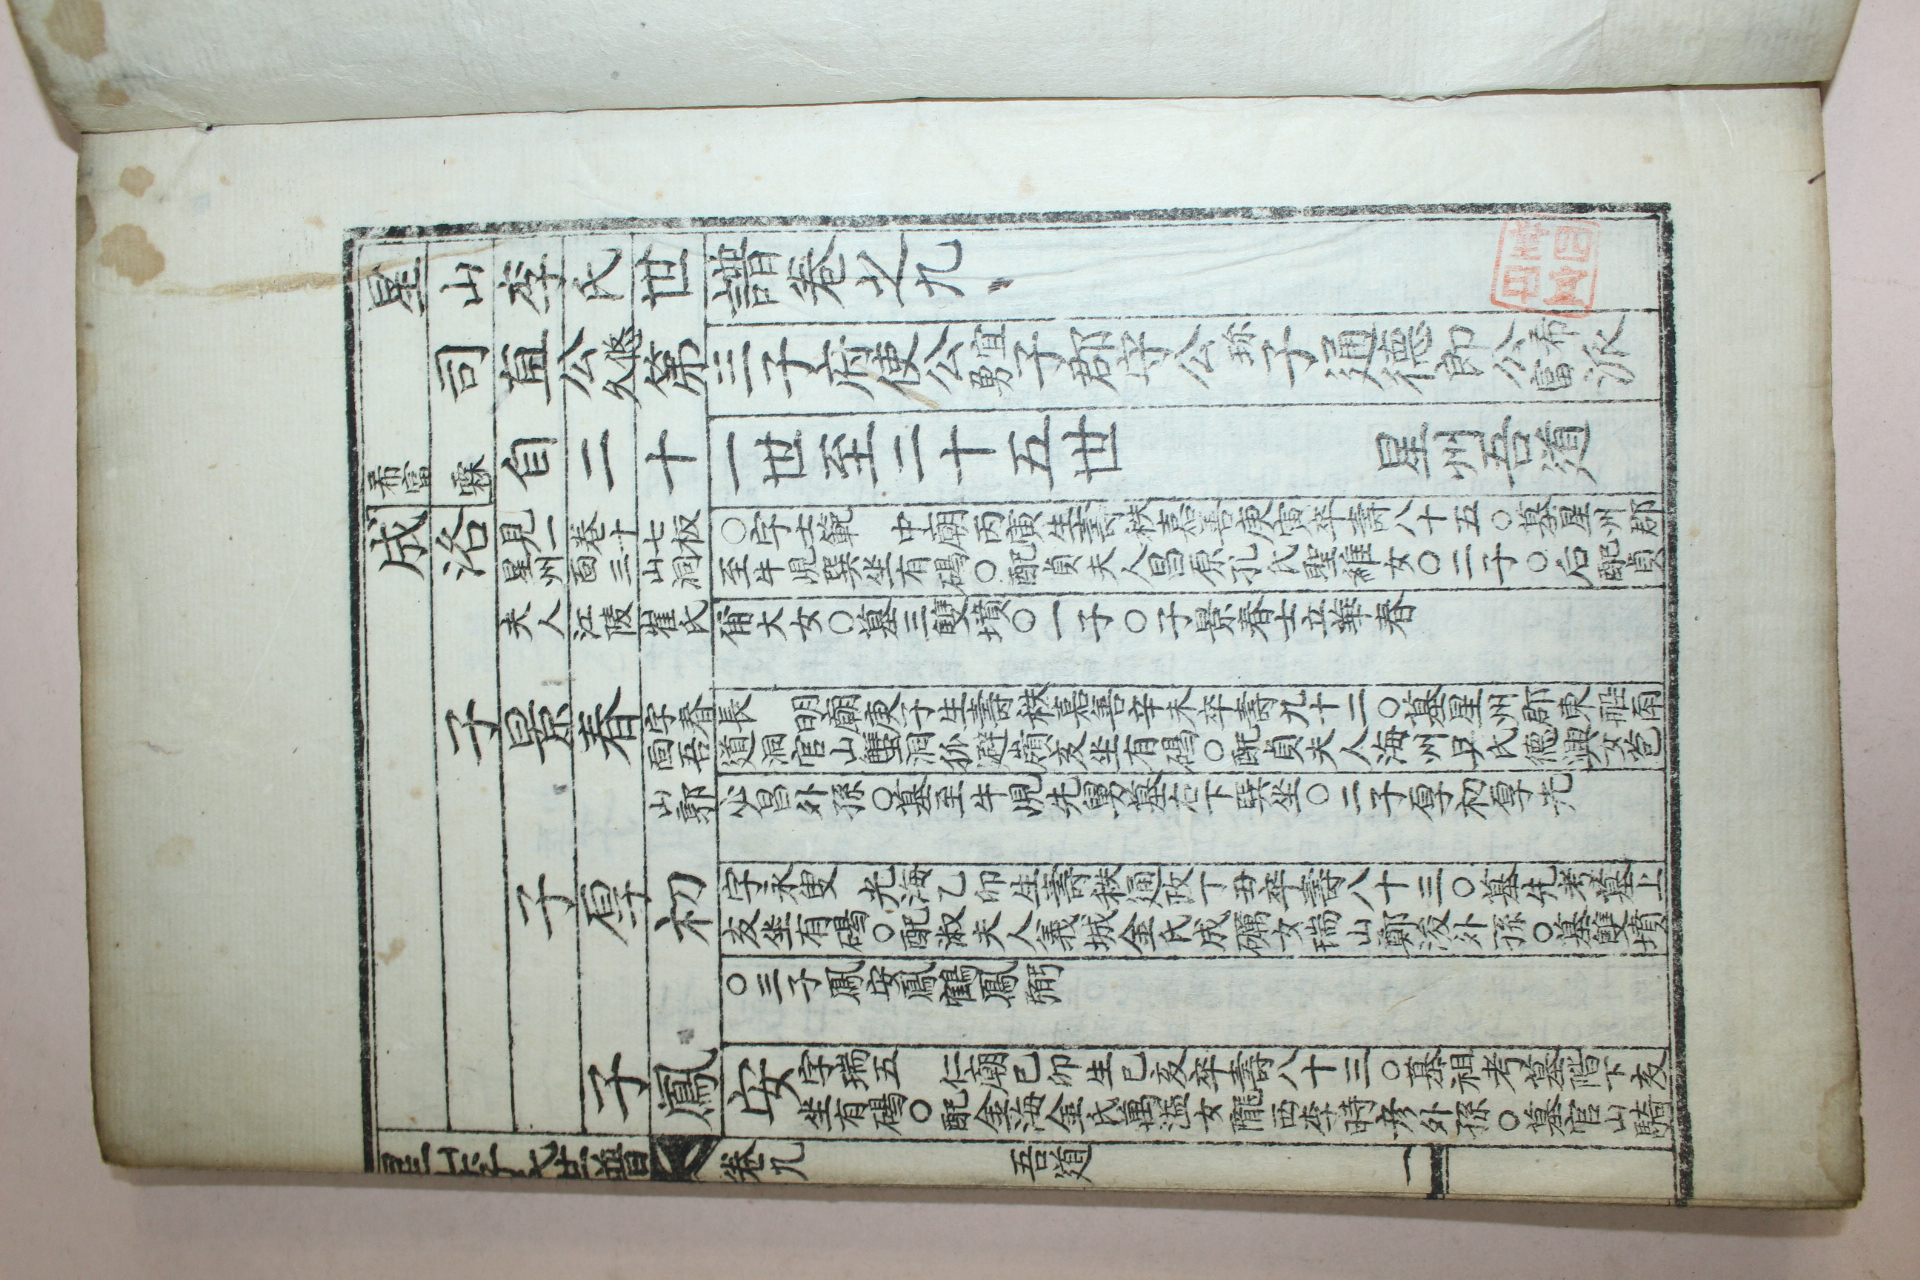 星山李氏世譜卷之九
司直公悠久第三子府使公宜勇子郡守公珎子通德郎公希富派
自二十一世至二十五世 星州吾道
希富
霖
成洛
見一卷十七板〇字士範 中廟丙寅生壽秩嘉善庚寅卒壽八十五〇墓星州郡
星州面三山洞至牛峴巽坐有碣〇配貞夫人昌原孔氏聖維女〇二子〇后配貞
夫人江陵崔氏甫大女〇墓三雙墳〇一子〇子景春士立華春
子景春
字春長 明廟庚子生壽秩嘉善辛未卒壽九十二〇墓星州郡東船南
面吾道洞官山蟹洞狐避嶺亥坐有碣〇配貞夫人海州吳氏德興女苞
山郭必昌外孫〇墓至牛峴先舅墓右下巽坐〇二子厚初厚光
子厚初
字永叟 光海乙卯生壽秩通政丁丑卒壽八十三〇墓先考墓上
亥坐有碣〇配淑夫人義城金氏成礪女瑞山鄭浚外孫〇墓雙墳
〇三子鳳安鳳鶴鳳弼
子鳳安
字瑞五 仁廟己卯生己亥卒壽八十三〇墓祖考墓階下亥
坐有碣〇配金海金氏萬溢女隴西李時彦外孫〇墓官山騎
星山李氏世譜 卷九 吾道 一